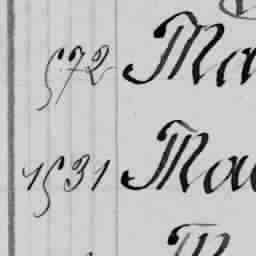 572 Ma
1531 Mac